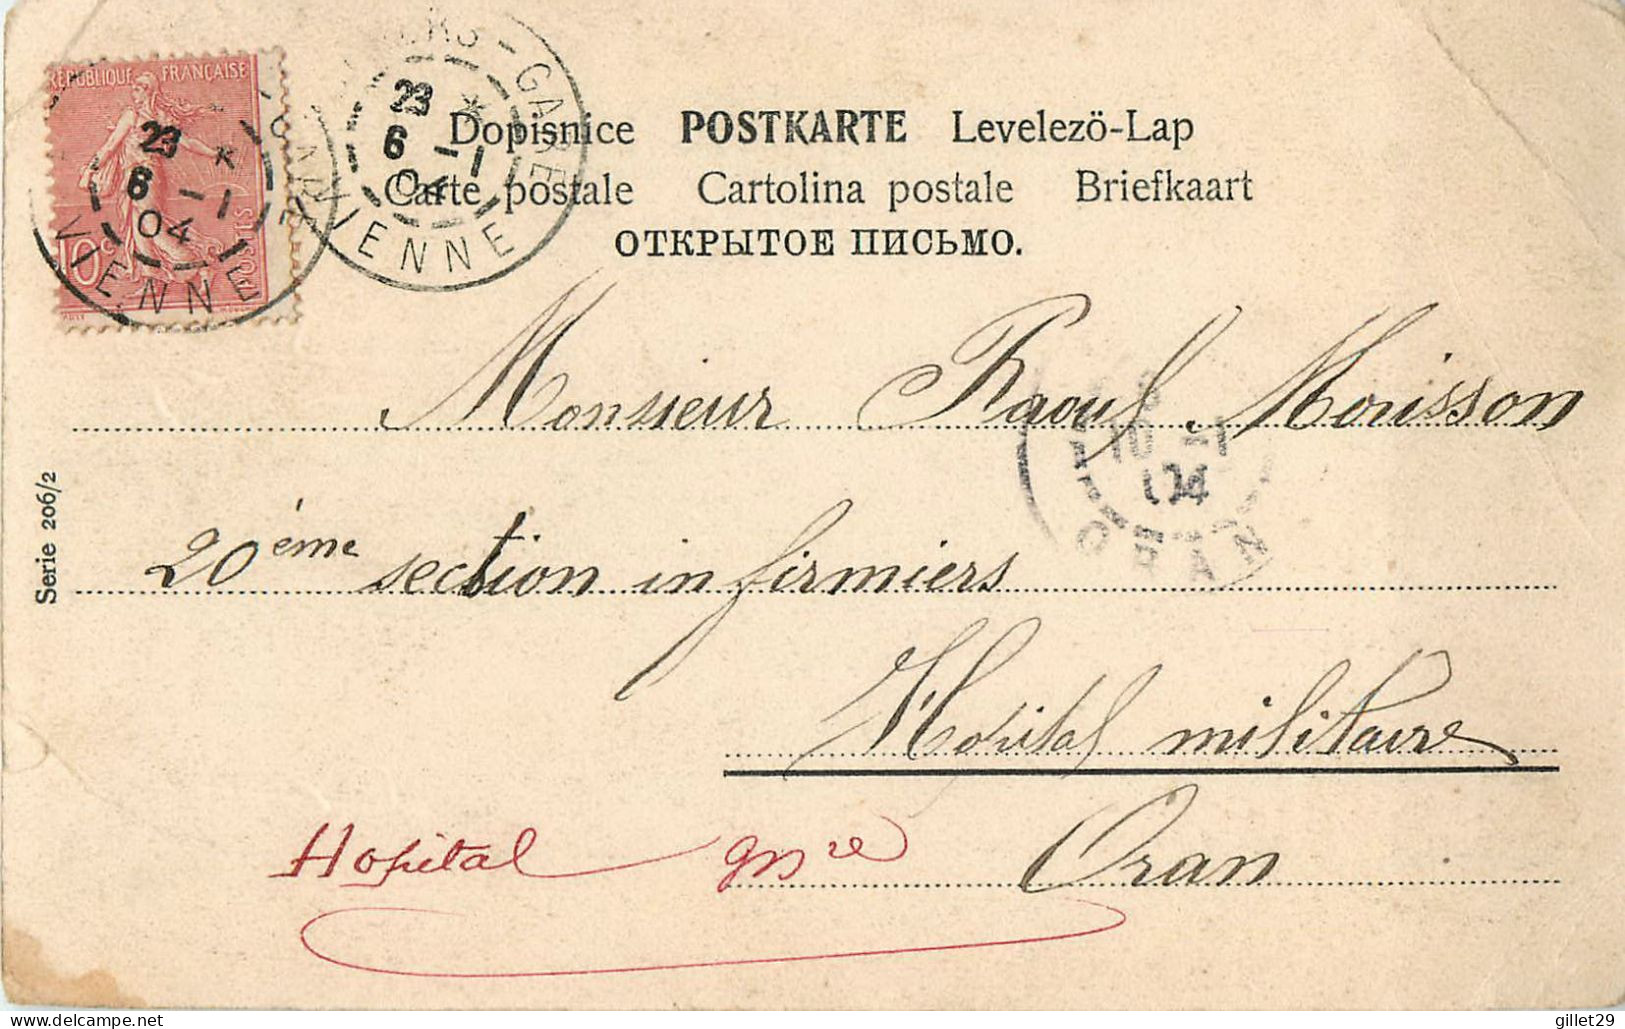 RÉPUBLIQUE FRANÇAISE
23
6 -1
04
VIENNE
10c
POSTES
-GARE
23
6 -1
04
VIENNE
Dopisnice POSTKARTE Levelezö-Lap
Carte postale Cartolina postale Briefkaart
ОТКРЫТОЕ ПИСЬМО.
Monsieur Raoul Moisson
10 -1
04
ORAN
20ème section infirmiers
Hopital militaire
Hopital Oran
Serie 206/2
gillet29